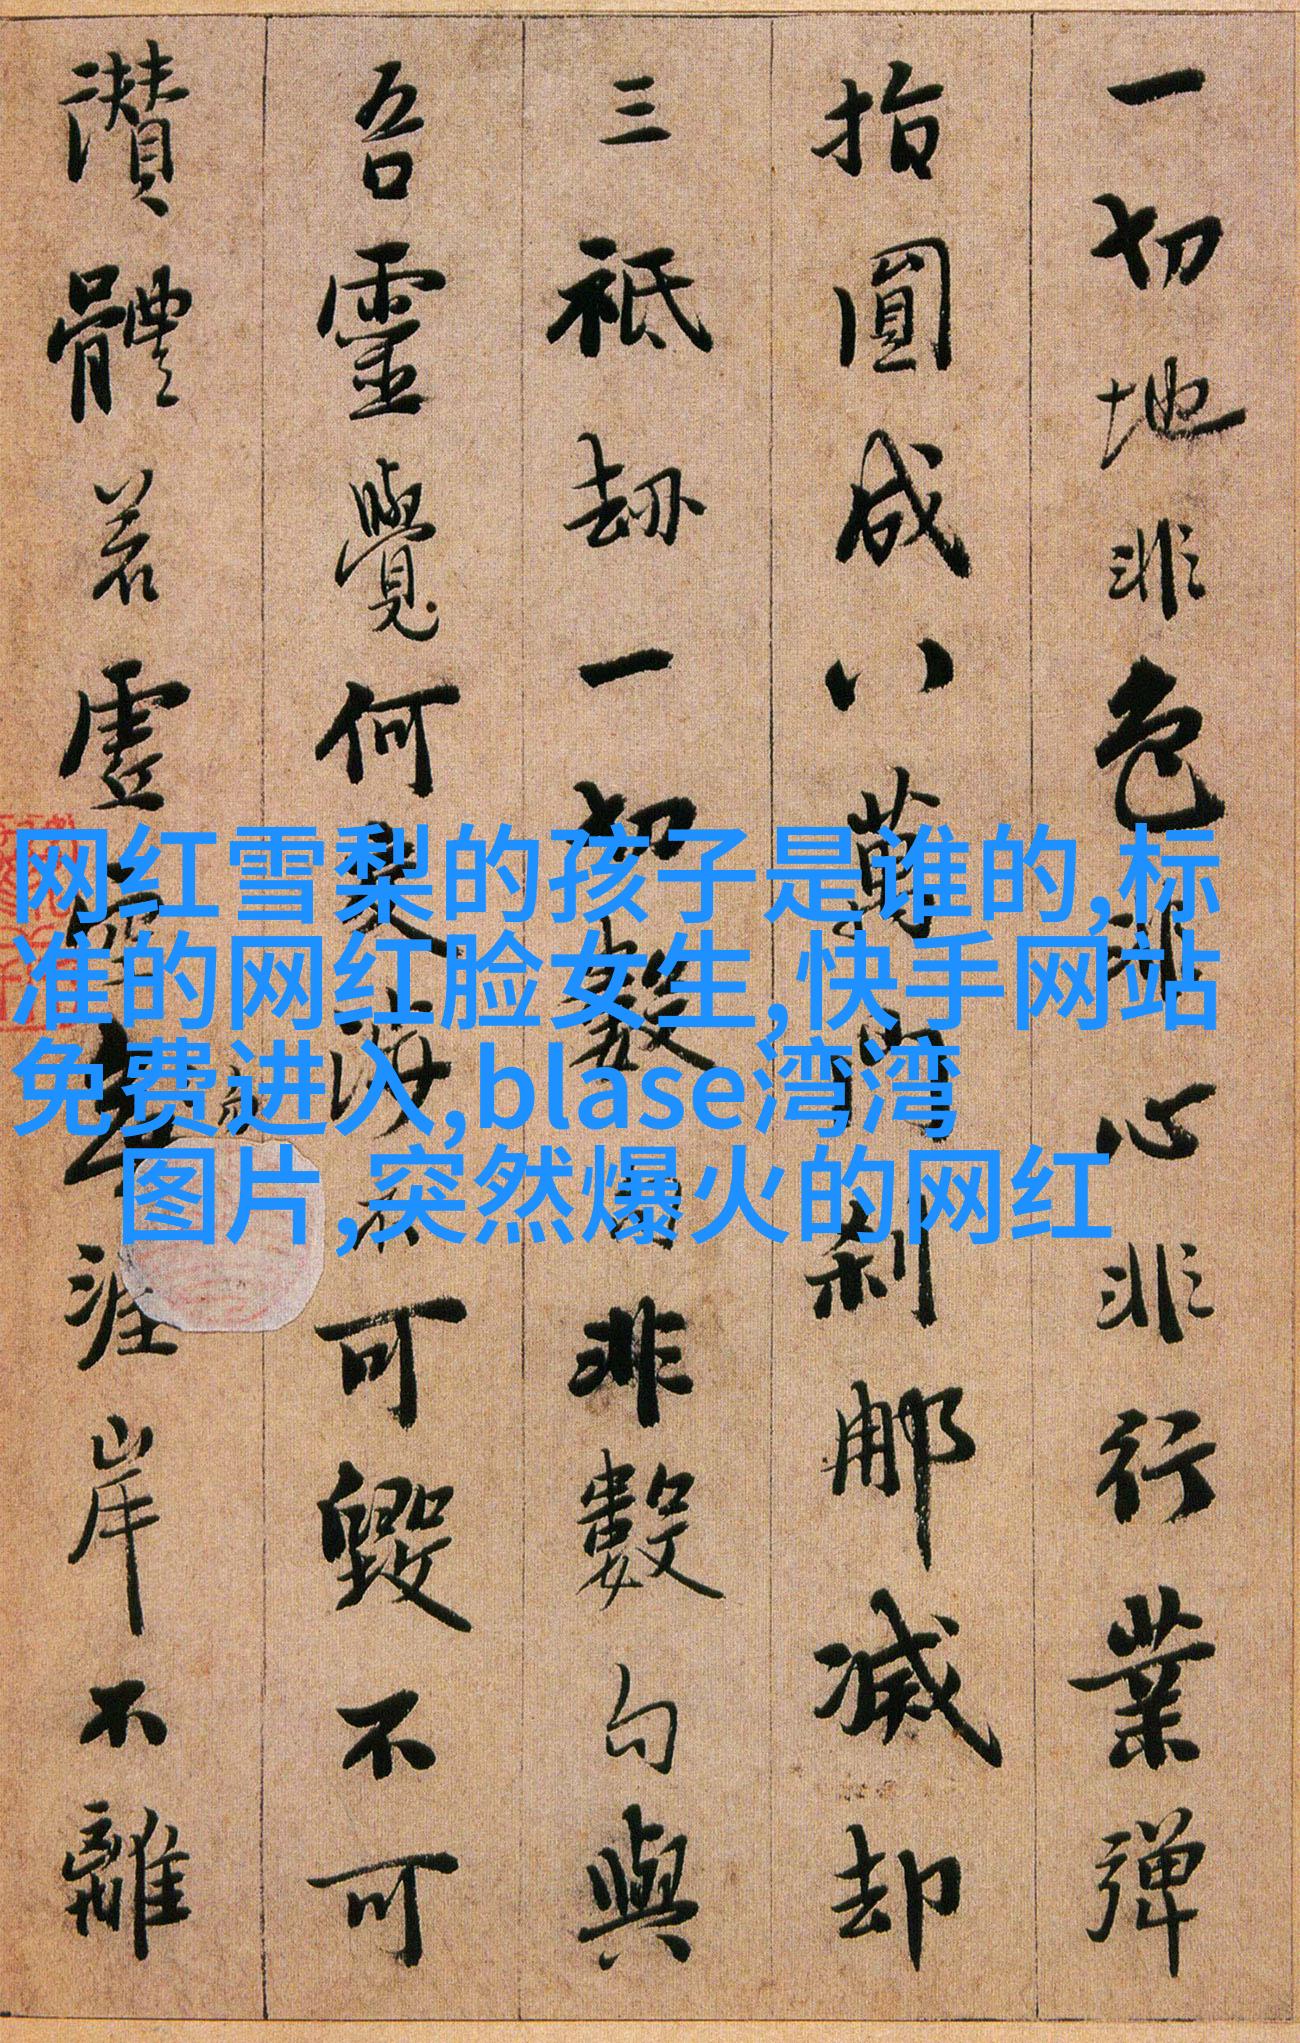 一切地非色非心非行業彈
指圓成八萬門刹那滅却
三祇劫一切數句非數句與
吾靈覺何交涉不可毀不可
讚體若虛空涯岸不離
网红雪梨的孩子是谁的,标
准的网红脸女生,快手网站
免费进入,blase湾湾
图片,突然爆火的网红